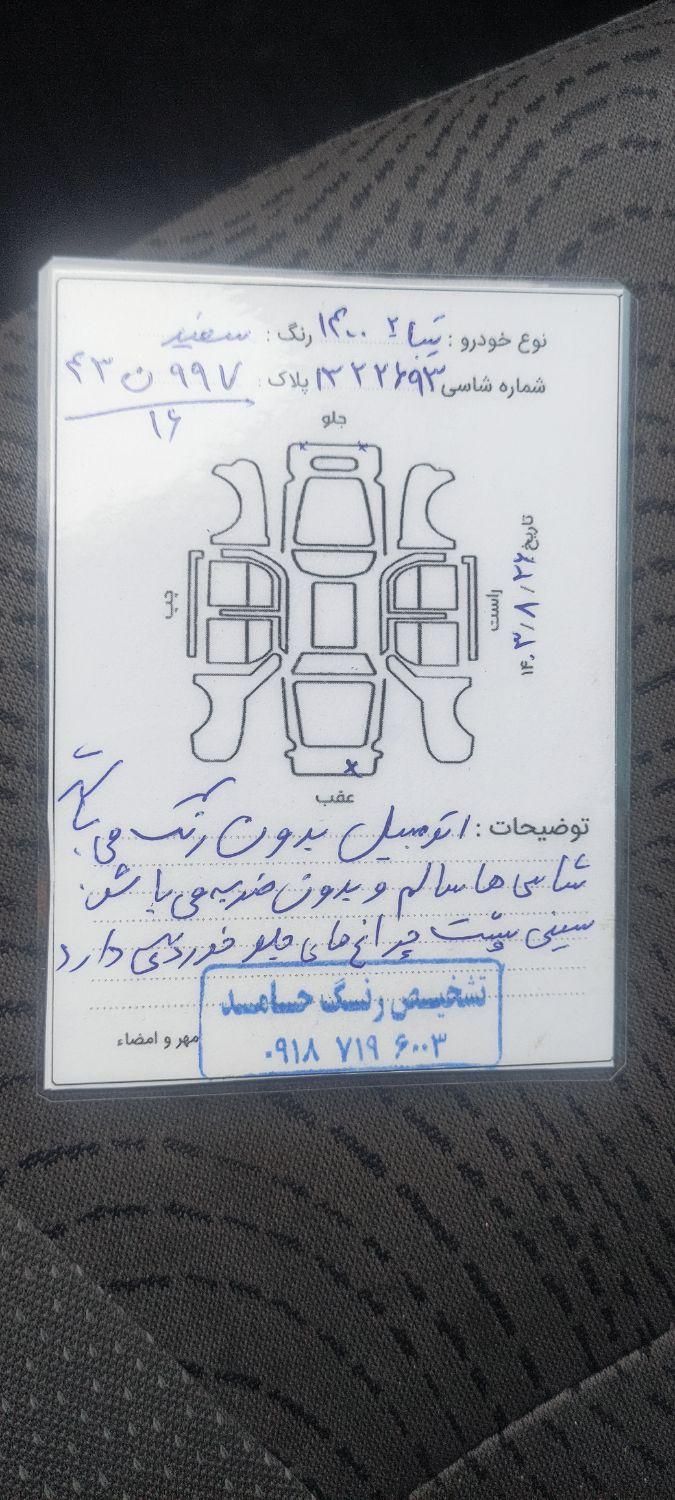 نوع خودرو : تیبا ۲ ۱۴۰۰ رنگ : سفید
شماره شاسی ۱۳۲۲۶۹۳ پلاک : ۹۹۷ ن ۴۳
۱۶
جلو
چپ
راست
تاریخ ۱۴۰۳/۸/۲۶
عقب
توضیحات : اتومبیل بدون رنگ می باشد
شاسی ها سالم و بدون ضربه می باشد.
سینی پشت چراغ های جلو خوردگی دارد
تشخیص رنگ حامد
۰۹۱۸ ۷۱۹ ۶۰۰۳
مهر و امضاء